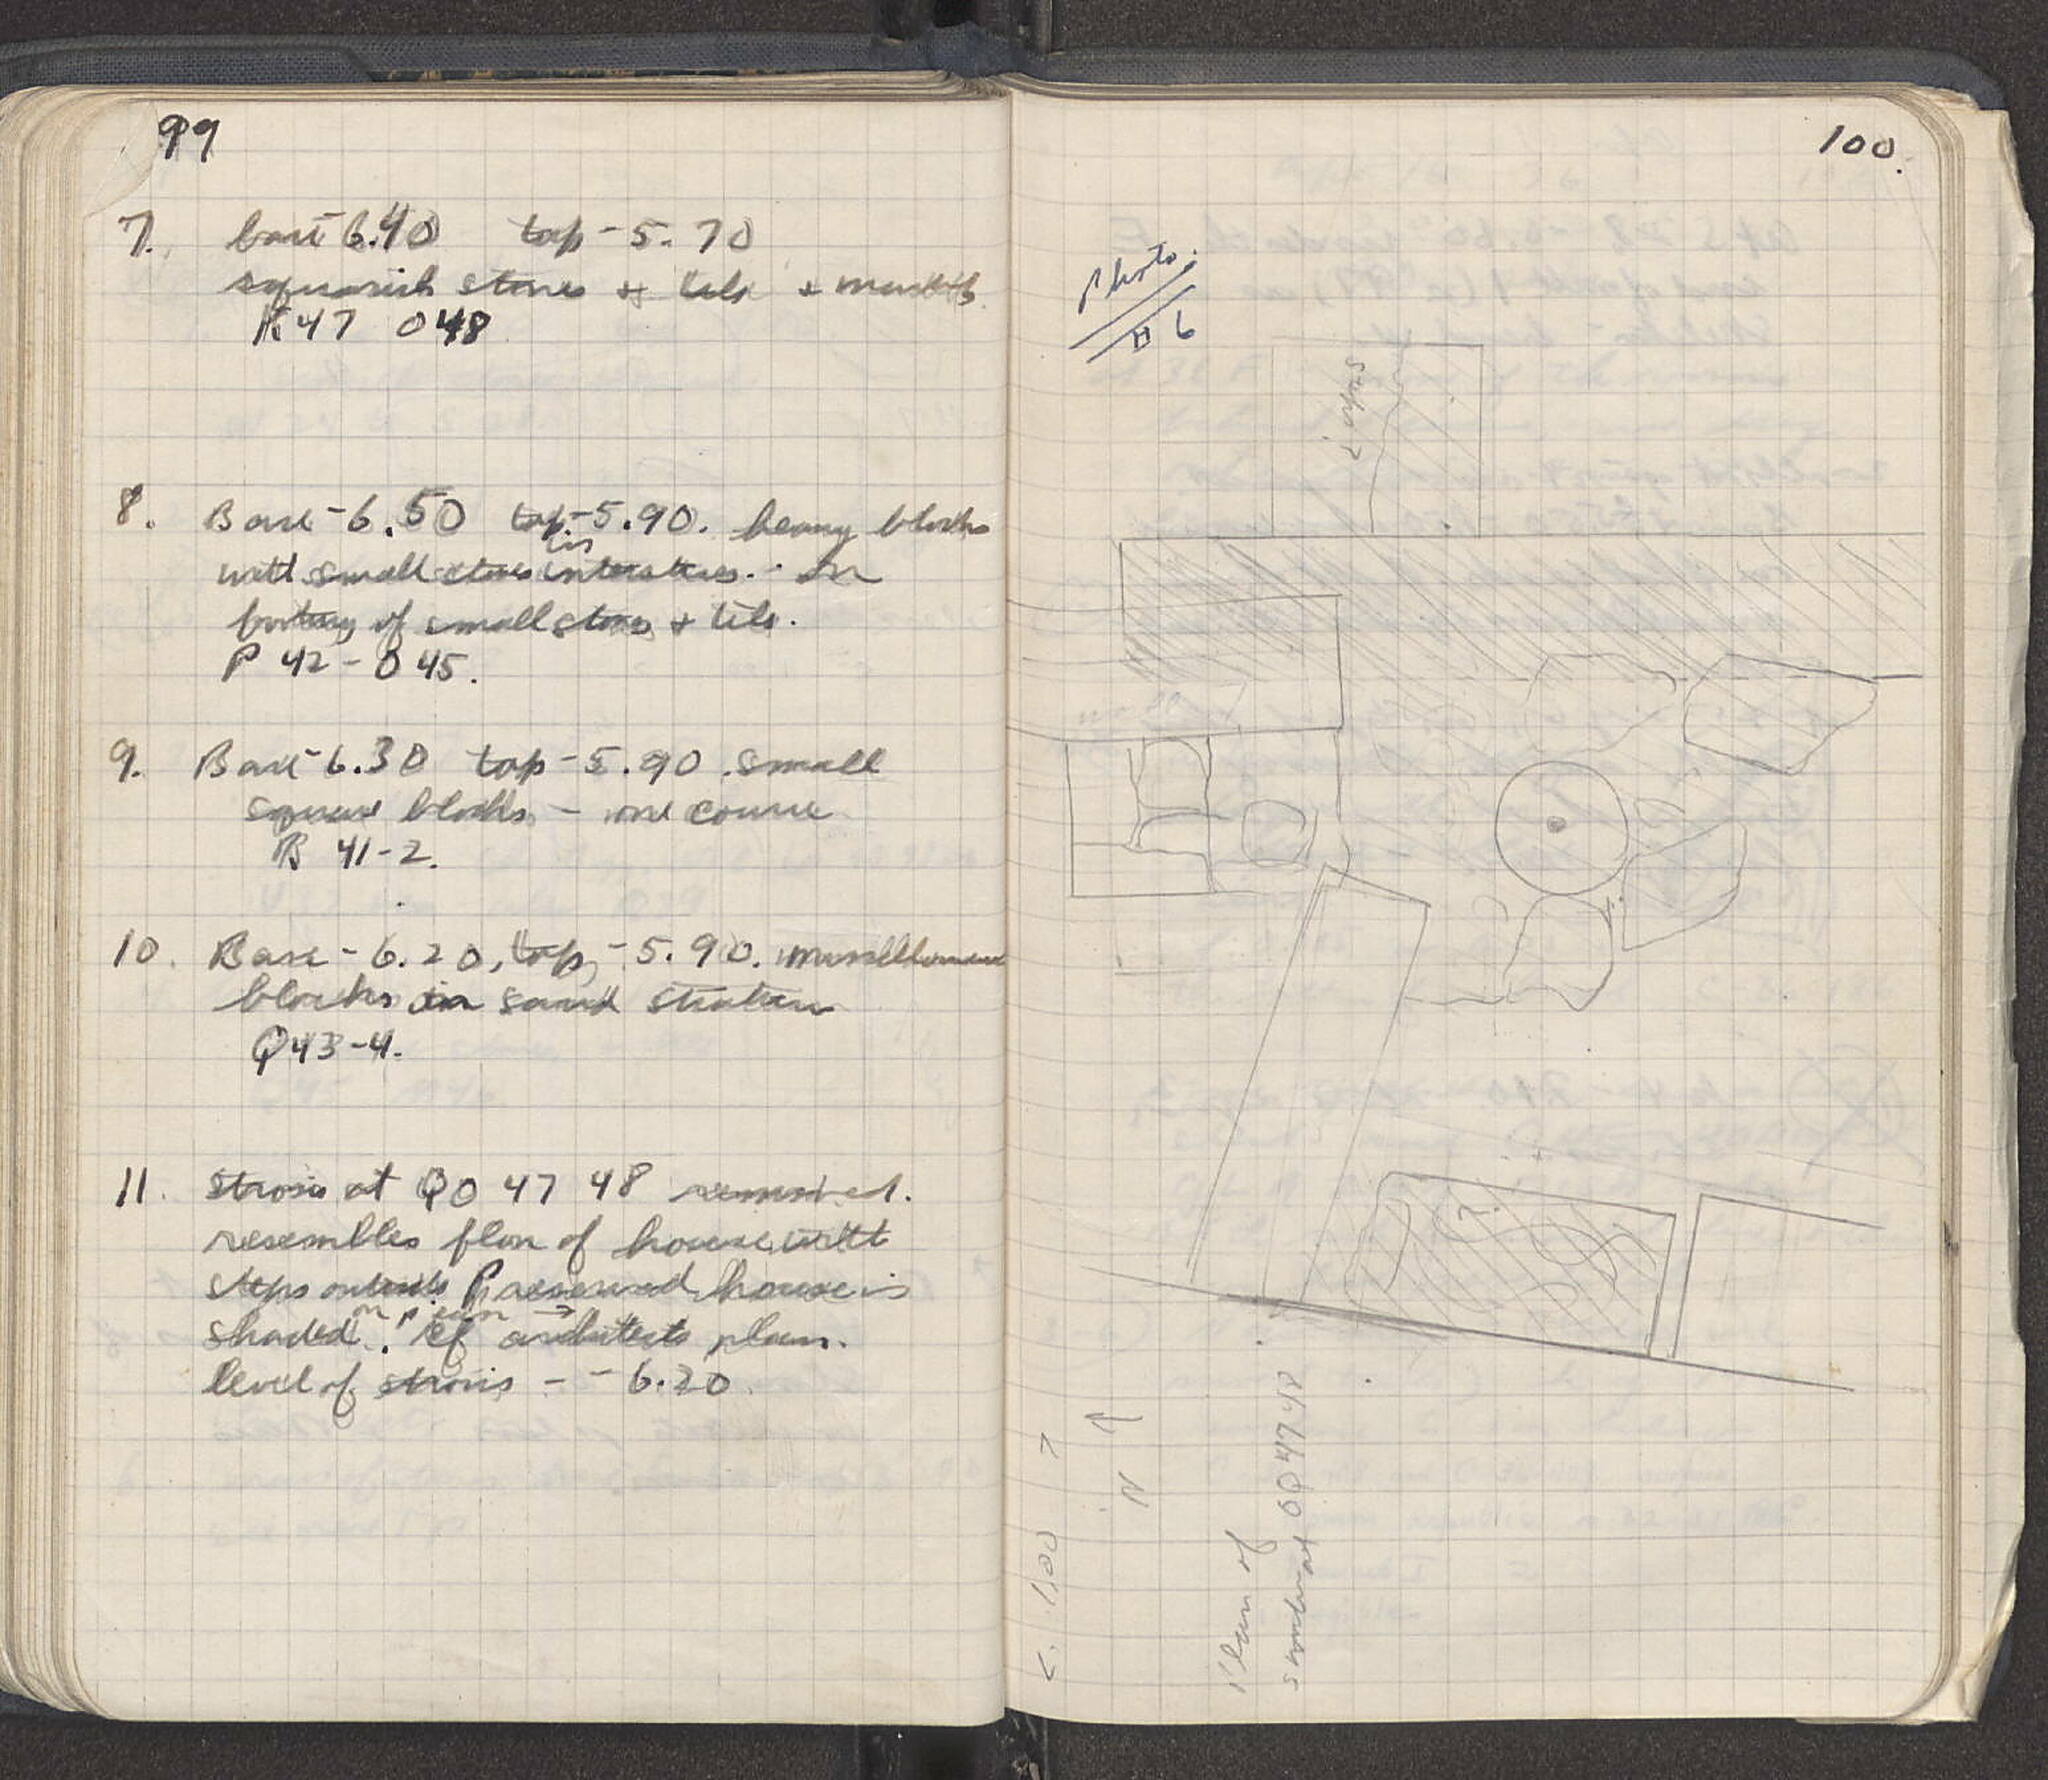 99
7. base -6.40 top -5.70
squarish stones + tile +
R47 O48
8. Base -6.50 top -5.90. heavy blocks
with small stones in interstices. - on
footing of small stones + tile.
P 42 - O 45.
9. Base -6.30 top -5.90. small
square blocks - one course
R 41-2.
10. Base -6.20, top -5.90. miscellaneous
blocks in sand stratum
Q43-4.
11. Strosis at QO 47 48 removed.
resembles floor of house with
steps outside. Preserved house is
shaded on plan →. cf architects plan.
level of strosis - -6.20
100.
Photo.
# 6
steps?
?
N
c. 1.00
Plan of
at OQ 47 48